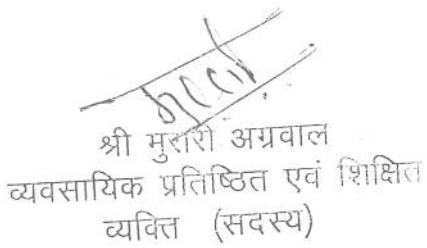 श्री मुरारी अग्रवाल
व्यवसायिक प्रतिष्ठित एवं शिक्षित
व्यक्ति (सदस्य)